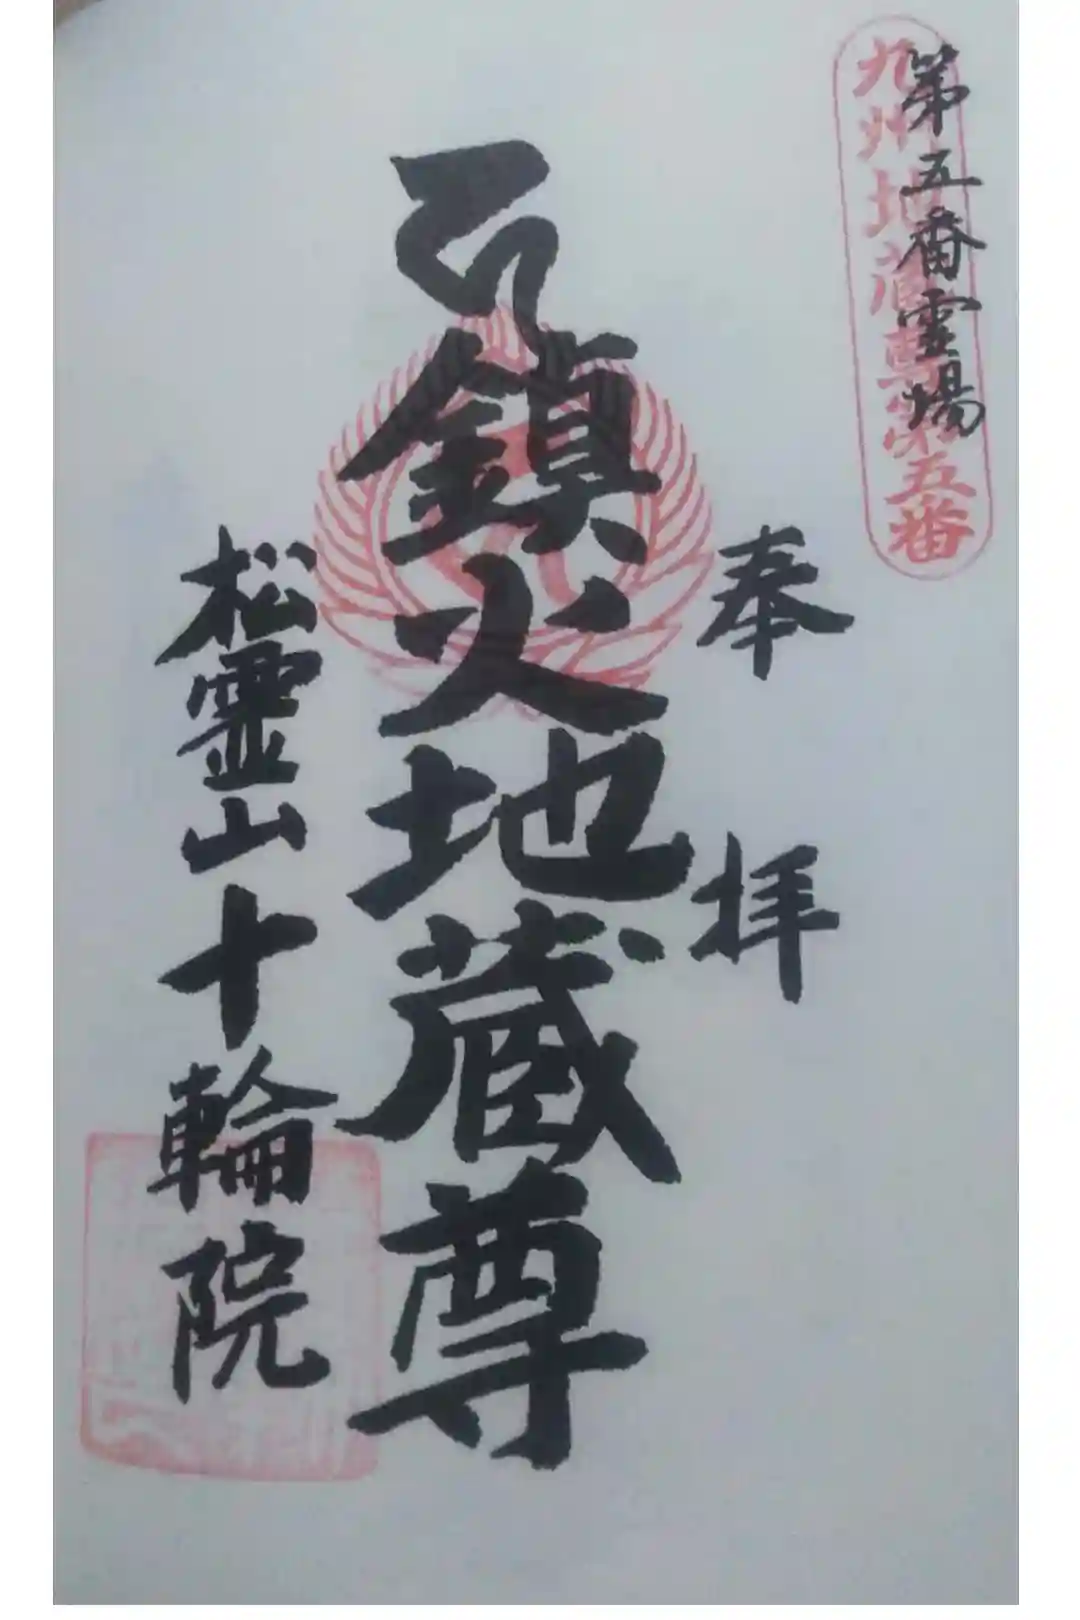 第五番霊場
九州地蔵尊第五番
奉拝
鎮火地蔵尊
松霊山十輪院